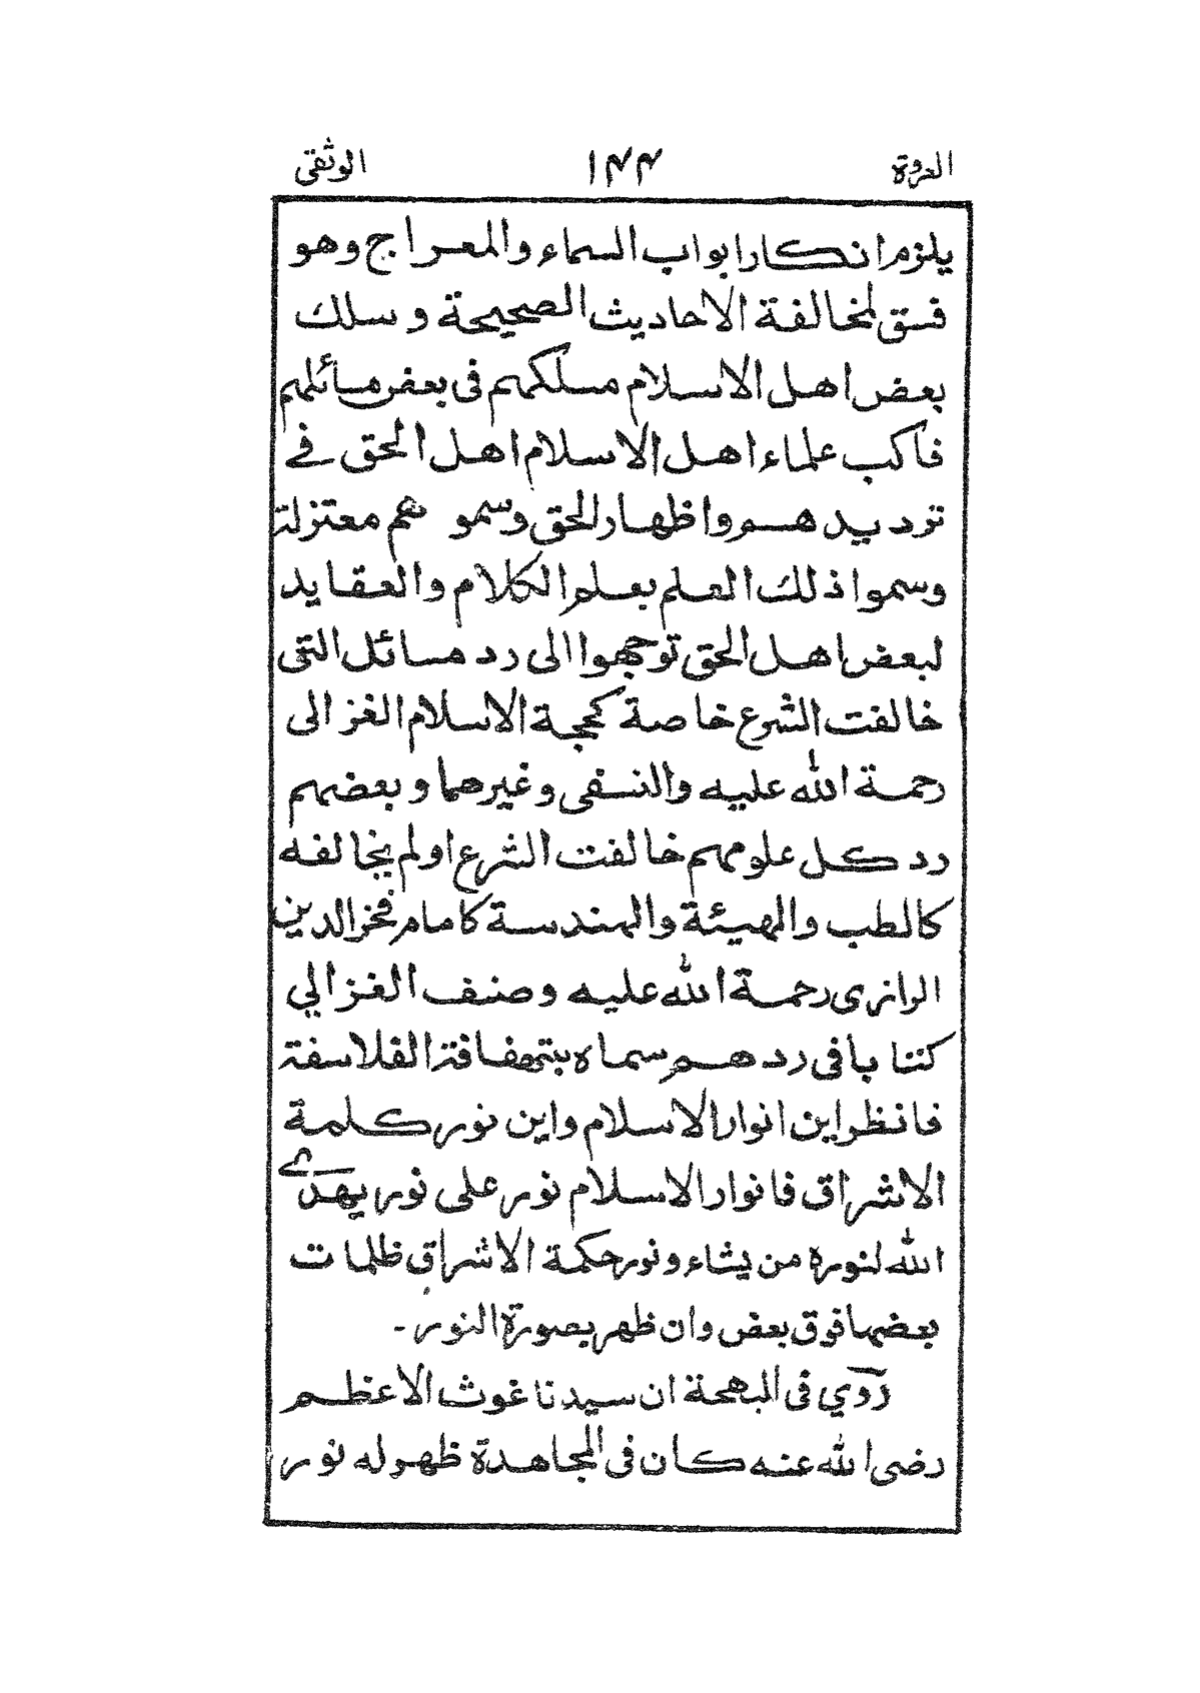 العروة ۱۴۴ الوثقى
يلزم انكار ابواب السماء والمعراج وهو
فسق لمخالفة الاحاديث الصحيحة و سلك
بعض اهل الاسلام مسلكهم فى بعض مسائلهم
فاكب علماء اهل الاسلام اهل الحق فے
ترديد هم واظهار الحق وسمو هم معتزلة
وسموا ذلك العلم بعلم الكلام والعقايد
لبعض اهل الحق توجهوا الى رد مسائل التى
خالفت الشرع خاصة كحجة الاسلام الغزالى
رحمة الله عليه والنسفى وغيرهما وبعضهم
رد كل علومهم خالفت الشرع او لم يخالفه
كالطب والهيئة والهندسة كامام فخر الدين
الرازى رحمة الله عليه وصنف الغزالي
كتابا فى رد هم سماه بتهفافة الفلاسفة
فانظر اين انوار الاسلام واين نور كلمة
الاشراق فانوار الاسلام نور على نور يهدے
الله لنوره من يشاء ونور حكمة الاشراق ظلمات
بعضها فوق بعض وان ظهر بصورة النور -
روي فى البهجة ان سيدنا غوث الاعظم
رضى الله عنه كان فى المجاهدة ظهر له نور